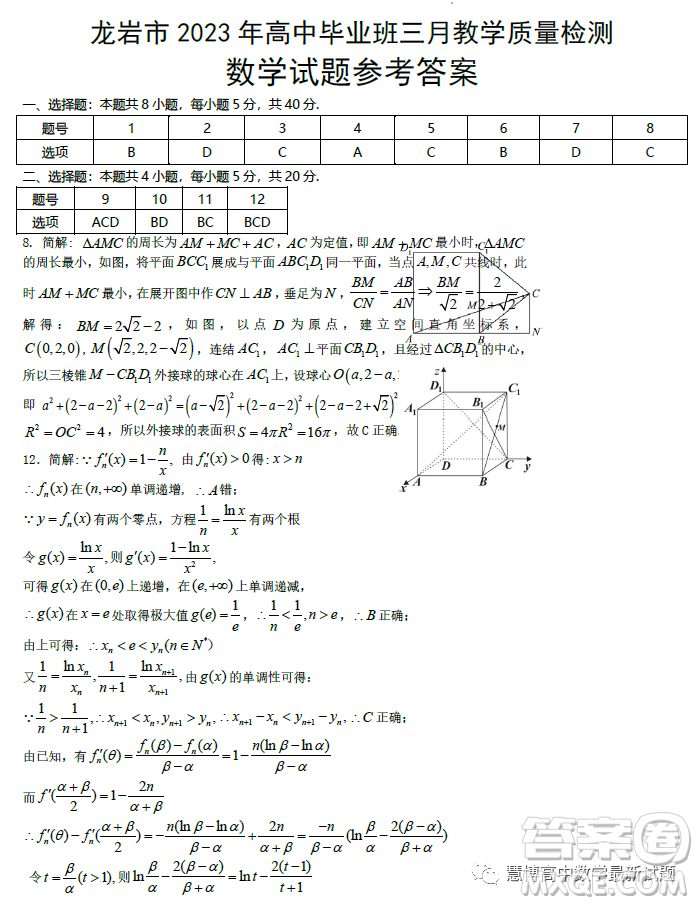 龙岩市 2023 年高中毕业班三月教学质量检测
数学试题参考答案
一、选择题：本题共 8 小题，每小题 5 分，共 40 分.
题号 1 2 3 4 5 6 7 8
选项 B D C A C B D C
二、选择题：本题共 4 小题，每小题 5 分，共 20 分.
题号 9 10 11 12
选项 ACD BD BC BCD
8. 简解: ΔAMC 的周长为 AM + MC + AC，AC 为定值，即 AM + MC 最小时，ΔAMC
的周长最小，如图，将平面 BCC₁ 展成与平面 ABC₁D₁ 同一平面，当点 A, M, C 共线时，此
时 AM + MC 最小，在展开图中作 CN ⊥ AB，垂足为 N，BM/CN = AB/AN ⇒ BM/√2 = 2/(2+√2)
解得： BM = 2√2 − 2 ，如图，以点 D 为原点，建立空间直角坐标系，
C(0,2,0), M(√2,2,2−√2)，连结 AC₁，AC₁ ⊥ 平面 CB₁D₁，且经过 ΔCB₁D₁ 的中心，
所以三棱锥 M − CB₁D₁ 外接球的球心在 AC₁ 上，设球心 O(a,2−a,
即 a² + (2−a−2)² + (2−a)² = (a−√2)² + (2−a−2)² + (2−a−2+√2)²
R² = OC² = 4，所以外接球的表面积 S = 4πR² = 16π，故 C 正确.
D₁ C₁ M C A B N
z D₁ C₁ A₁ B₁ M D C y A B x
12. 简解:∵ fₙ′(x) = 1 − n/x, 由 fₙ′(x) > 0 得: x > n
∴ fₙ(x) 在 (n,+∞) 单调递增, ∴ A 错;
∵ y = fₙ(x) 有两个零点，方程 1/n = ln x/x 有两个根
令 g(x) = ln x/x, 则 g′(x) = (1 − ln x)/x²,
可得 g(x) 在 (0,e) 上递增，在 (e,+∞) 上单调递减，
∴ g(x) 在 x = e 处取得极大值 g(e) = 1/e，∴ 1/n < 1/e, n > e，∴ B 正确;
由上可得: ∴ xₙ < e < yₙ (n ∈ N*)
又 1/n = ln xₙ/xₙ, 1/(n+1) = ln xₙ₊₁/xₙ₊₁, 由 g(x) 的单调性可得:
∵ 1/n > 1/(n+1), ∴ xₙ₊₁ < xₙ, yₙ₊₁ > yₙ, ∴ xₙ₊₁ − xₙ < yₙ₊₁ − yₙ, ∴ C 正确;
由已知，有 fₙ′(θ) = (fₙ(β) − fₙ(α))/(β − α) = 1 − n(ln β − ln α)/(β − α)
而 f′((α+β)/2) = 1 − 2n/(α+β)
∴ fₙ′(θ) − fₙ′((α+β)/2) = −n(ln β − ln α)/(β − α) + 2n/(α+β) = −n/(β−α) (ln β/α − 2(β−α)/(β+α))
令 t = β/α (t > 1), 则 ln β/α − 2(β−α)/(β+α) = ln t − 2(t−1)/(t+1)
答案圈
慧博高中数学最新试题
MXQE.COM